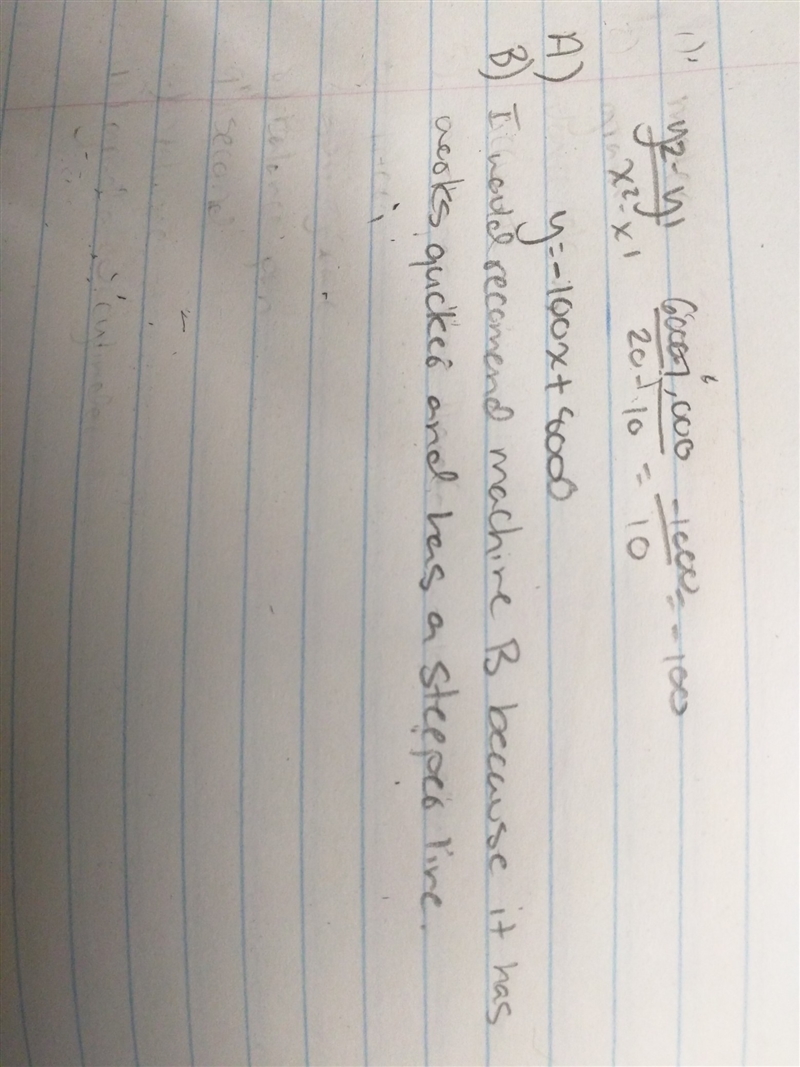 y2-y1 6000-7,000 -1000 = -100
x2-x1 20-10 = 10
A) y=-100x+8000
B) I would recomend machine B because it has
works quicker and has a steeper line.